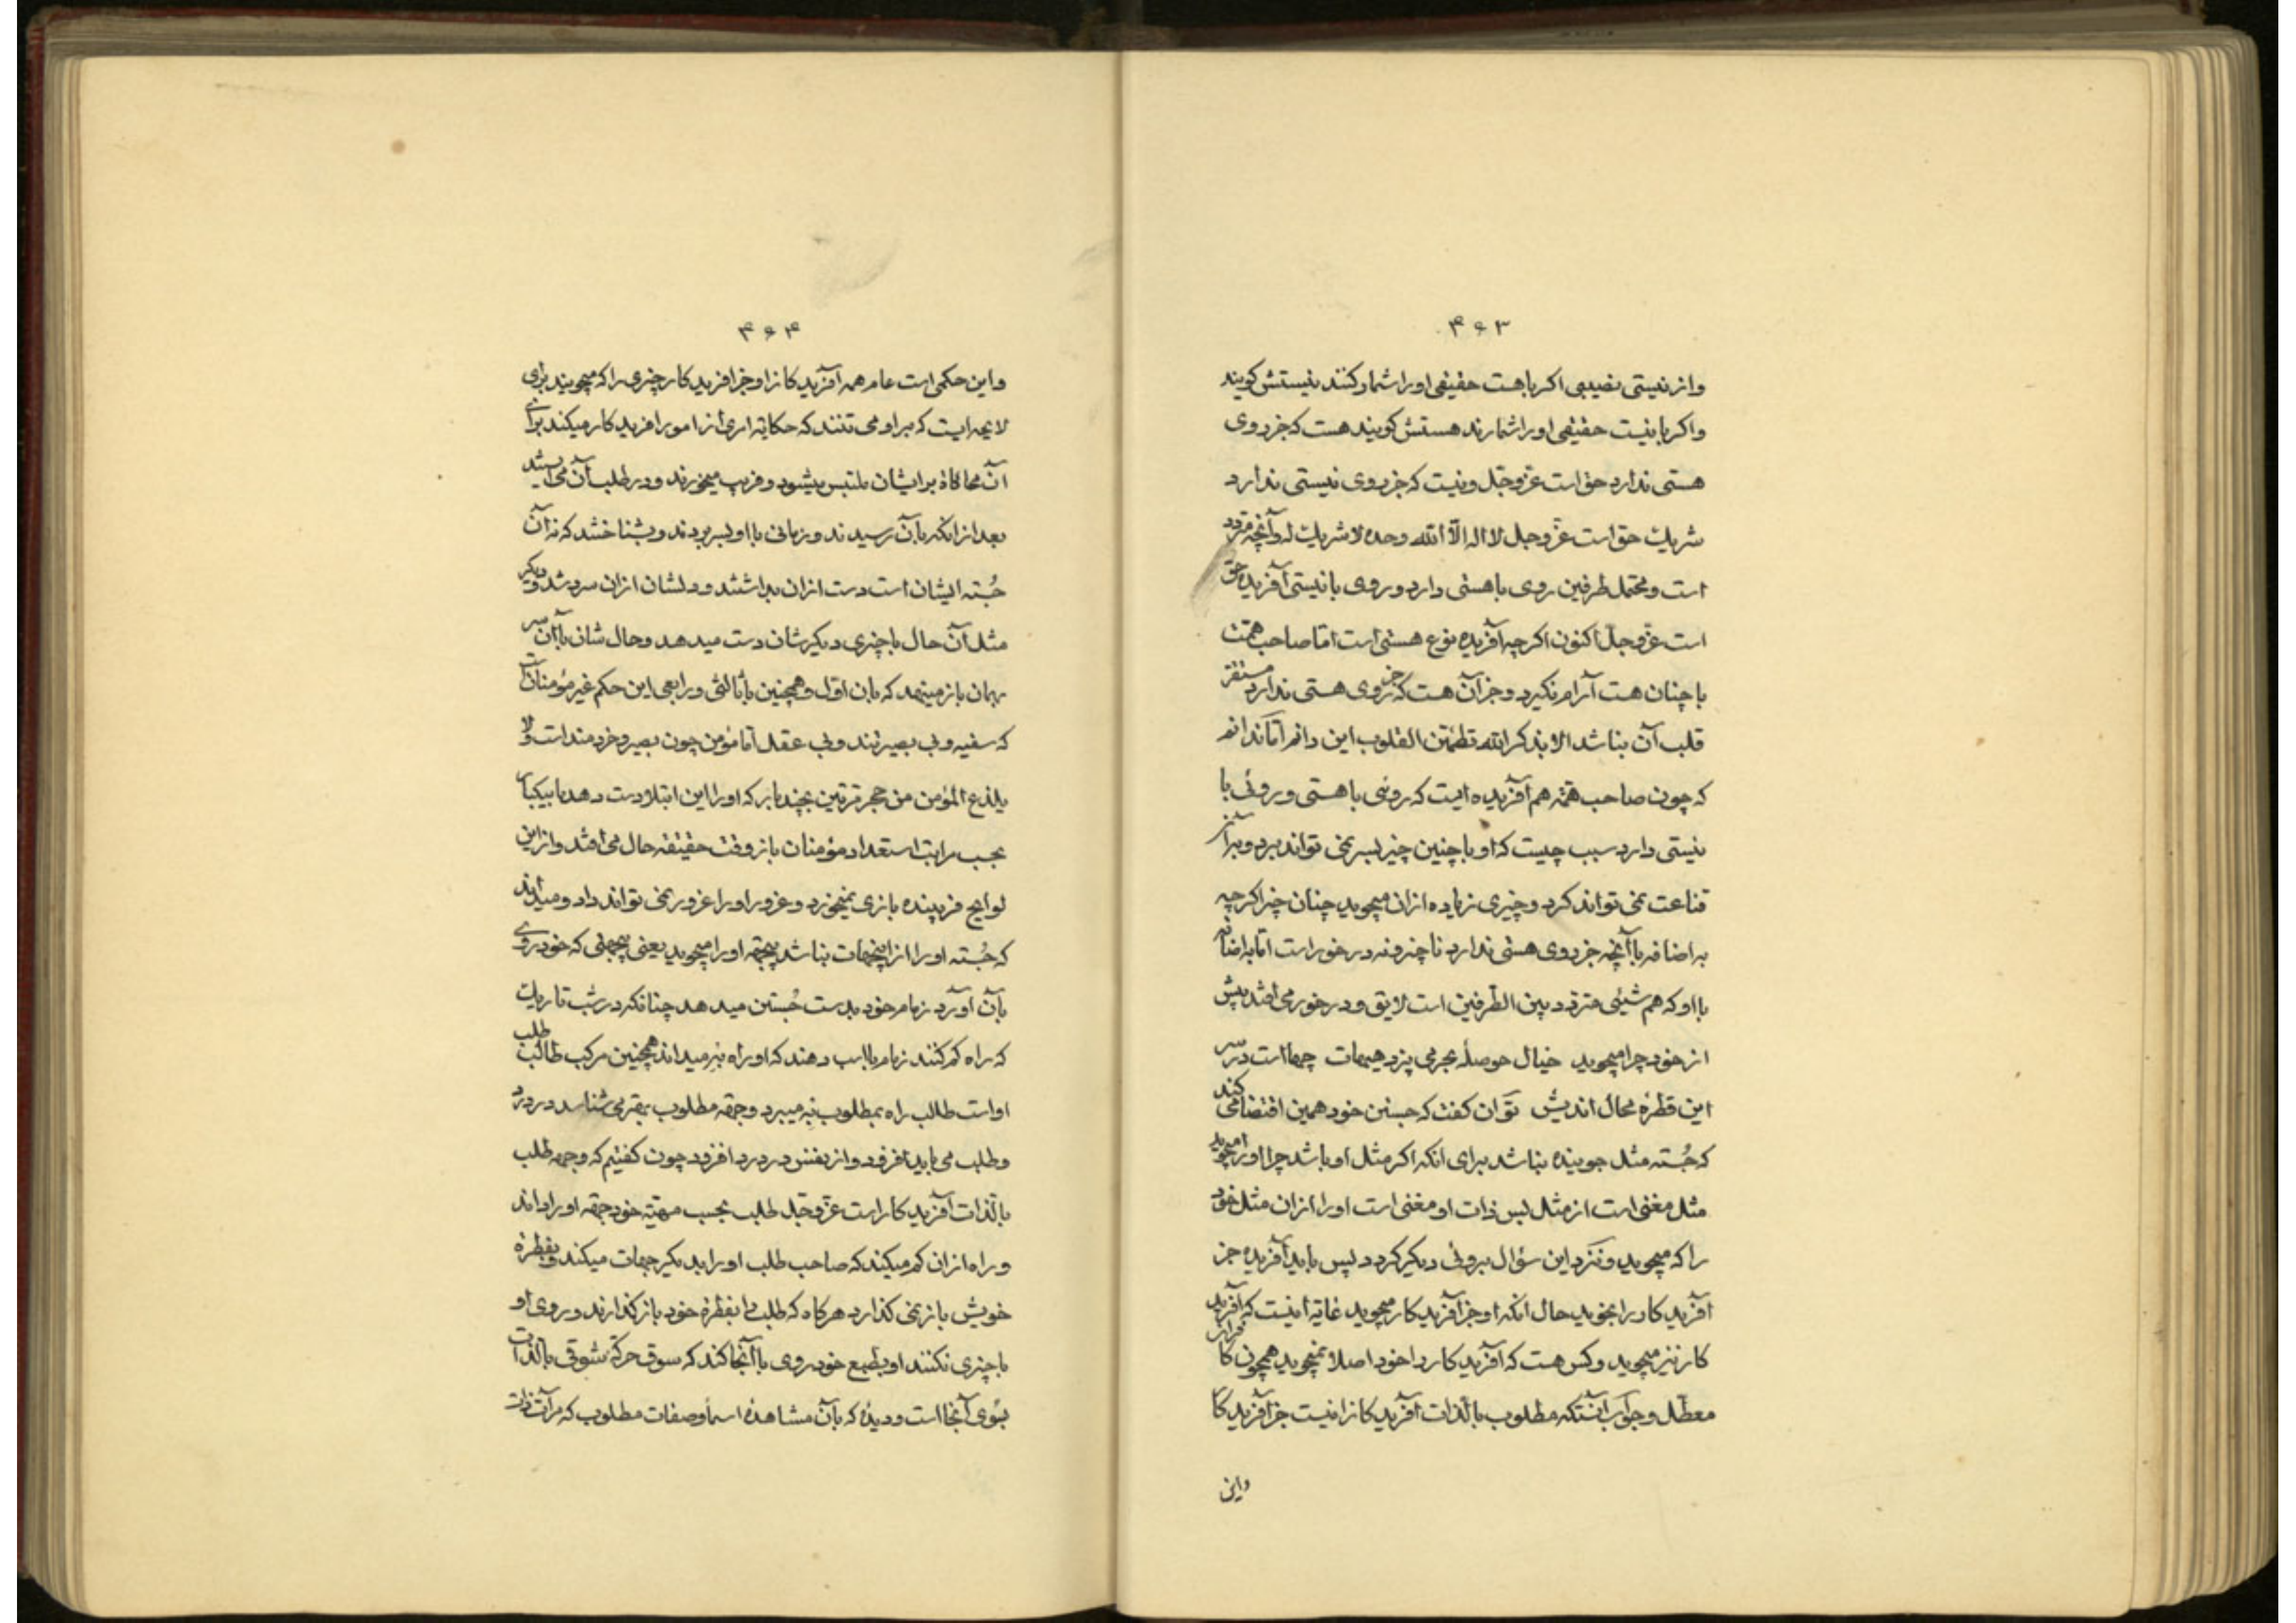 ۴۶۳
و از نیستی نصیبی اکر با هست حقیقی او را شمار کنند نیستش کویند
و اکر با نیست حقیقی او را شمارند هستش کویند هست که جز روی
هستی ندارد حق است عزّ و جّل و نیست که جز روی نیستی ندارد
شریک حق است عزّ و جل لا اله الّا الله وحده لا شریک له و آنچه متردد
است و محتمل طرفین روی با هستی دارد و روی با نیستی آفریده حق
است عزّ و جلّ اکنون اکر چه آفریده نوع هستی است امّا صاحب همّت
با چنان هست آرام نکیرد و جز آن هست که جز روی هستی ندارد مستقر
قلب آن نباشد الا بذکر الله تطمئن القلوب این دانم امّا ندانم
که چون صاحب همّة هم آفریده ایست که روئی با هستی و روئی با
نیستی دارد سبب چیست که او با چنین چیز بسر نمی تواند برد و بر آن
قناعت نمی تواند کرد و چیزی زیاده از ان میجوید چنان چیز اکر چه
به اضافه با آنچه جز روی هستی ندارد ناچیز و نه در خور است امّا به اضافه
با او که هم شیئی متردد بین الطّرفین است لایق و در خور می افتد پیش
از خود چرا میجوید خیال حوصلهٔ بحر می پزد هیهات چها است در سر
این قطرهٔ محال اندیش توان کفت که جستن خود همین اقتضا می کند
که جُسته مثل جوینده نباشد برای انکه اکر مثل او باشد چرا او را میجوید
مثل مغنی است از مثل پس ذات او مغنی است او را از ان مثل خود
را که میجوید و نزد این سؤال بروئی دیکر کردد پس باید آفریده جز
آفریدکار را بجوید حال انکه او جز آفریدکار میجوید غایة انیست که آفرید
کار نیز میجوید و کس هست که آفریدکار را خود اصلا نمیجوید همچون کا
معطّل و جواب آنستکه مطلوب بالّذات آفریدکانرا نیست جز آفریدکا
و این
۴۶۴
و این حکمی است عام همه آفریدکانرا و جز افریدکار چیزی را که میجویند برای
لایحه ایست که بر او می تنند که حکایة امری از امور افریدکار میکند برای
آن محاکاة بر ایشان ملتبس میشود و فریب میخورند و در طلب آن می ایستند
بعد از انکه بآن رسیدند و زمانی با او بسر بردند و بشناختند که نه آن
جُسته ایشان است دست از ان بداشتند و دلشان از ان سرد شد و دیکر
مثل آن حال با چیزی دیکرشان دست میدهد و حال شان با آن سر
بهمان باز مینهد که بان اوّل و همچنین با ثالثی و رابعی این حکم غیر مؤمنان است
که سفیه و بی بصیرتند و بی عقل امّا مؤمن چون بصیر و خردمند است و لا
یلدغ المؤمن من حجر مرتین بچند بار که او را این ابتلا دست دهد یا بیکبار
بحسب مراتب استعداد مؤمنان باز وقت حقیقه حال می افتد و از این
لوایح فریبنده بازی نمیخورد و غرور او را غرور نمی تواند داد و میداند
که جُسته او را از اینجهات نباشد بیجهة او را میجوید یعنی بجهتی که خود روی
بآن آورد زمام خود بدست جُستن میدهد چنانکه در شب تاریک
که راه کم کنند زمام با اسب دهند که او راه نیز میداند همچنین مرکب طالب طلب
او است طالب راه بمطلوب نه میبرد و جهة مطلوب بهتر می شناسد درد در
و طلب می باید افزود و از نفس درد درد افزود چون کفتیم که وجهه طلب
بالّذات آفریدکار است عزّ و جّل طلب بحسب مهیّه خود جهة او را داند
و راه از ان کم میکند که صاحب طلب او را بدیکر جهات میکند و بفطرة
خویش باز نمی کذارد هر کاه که طلب را بفطرة خود باز کذارند و روی او
با چیزی نکنند او بطبع خود روی با آنجا کند که سوق حرکة شوقی بالّذات
بسوی آنجا است و دیدۀ که بآن مشاهدۀ اسماء و صفات مطلوب که مرآت ذات